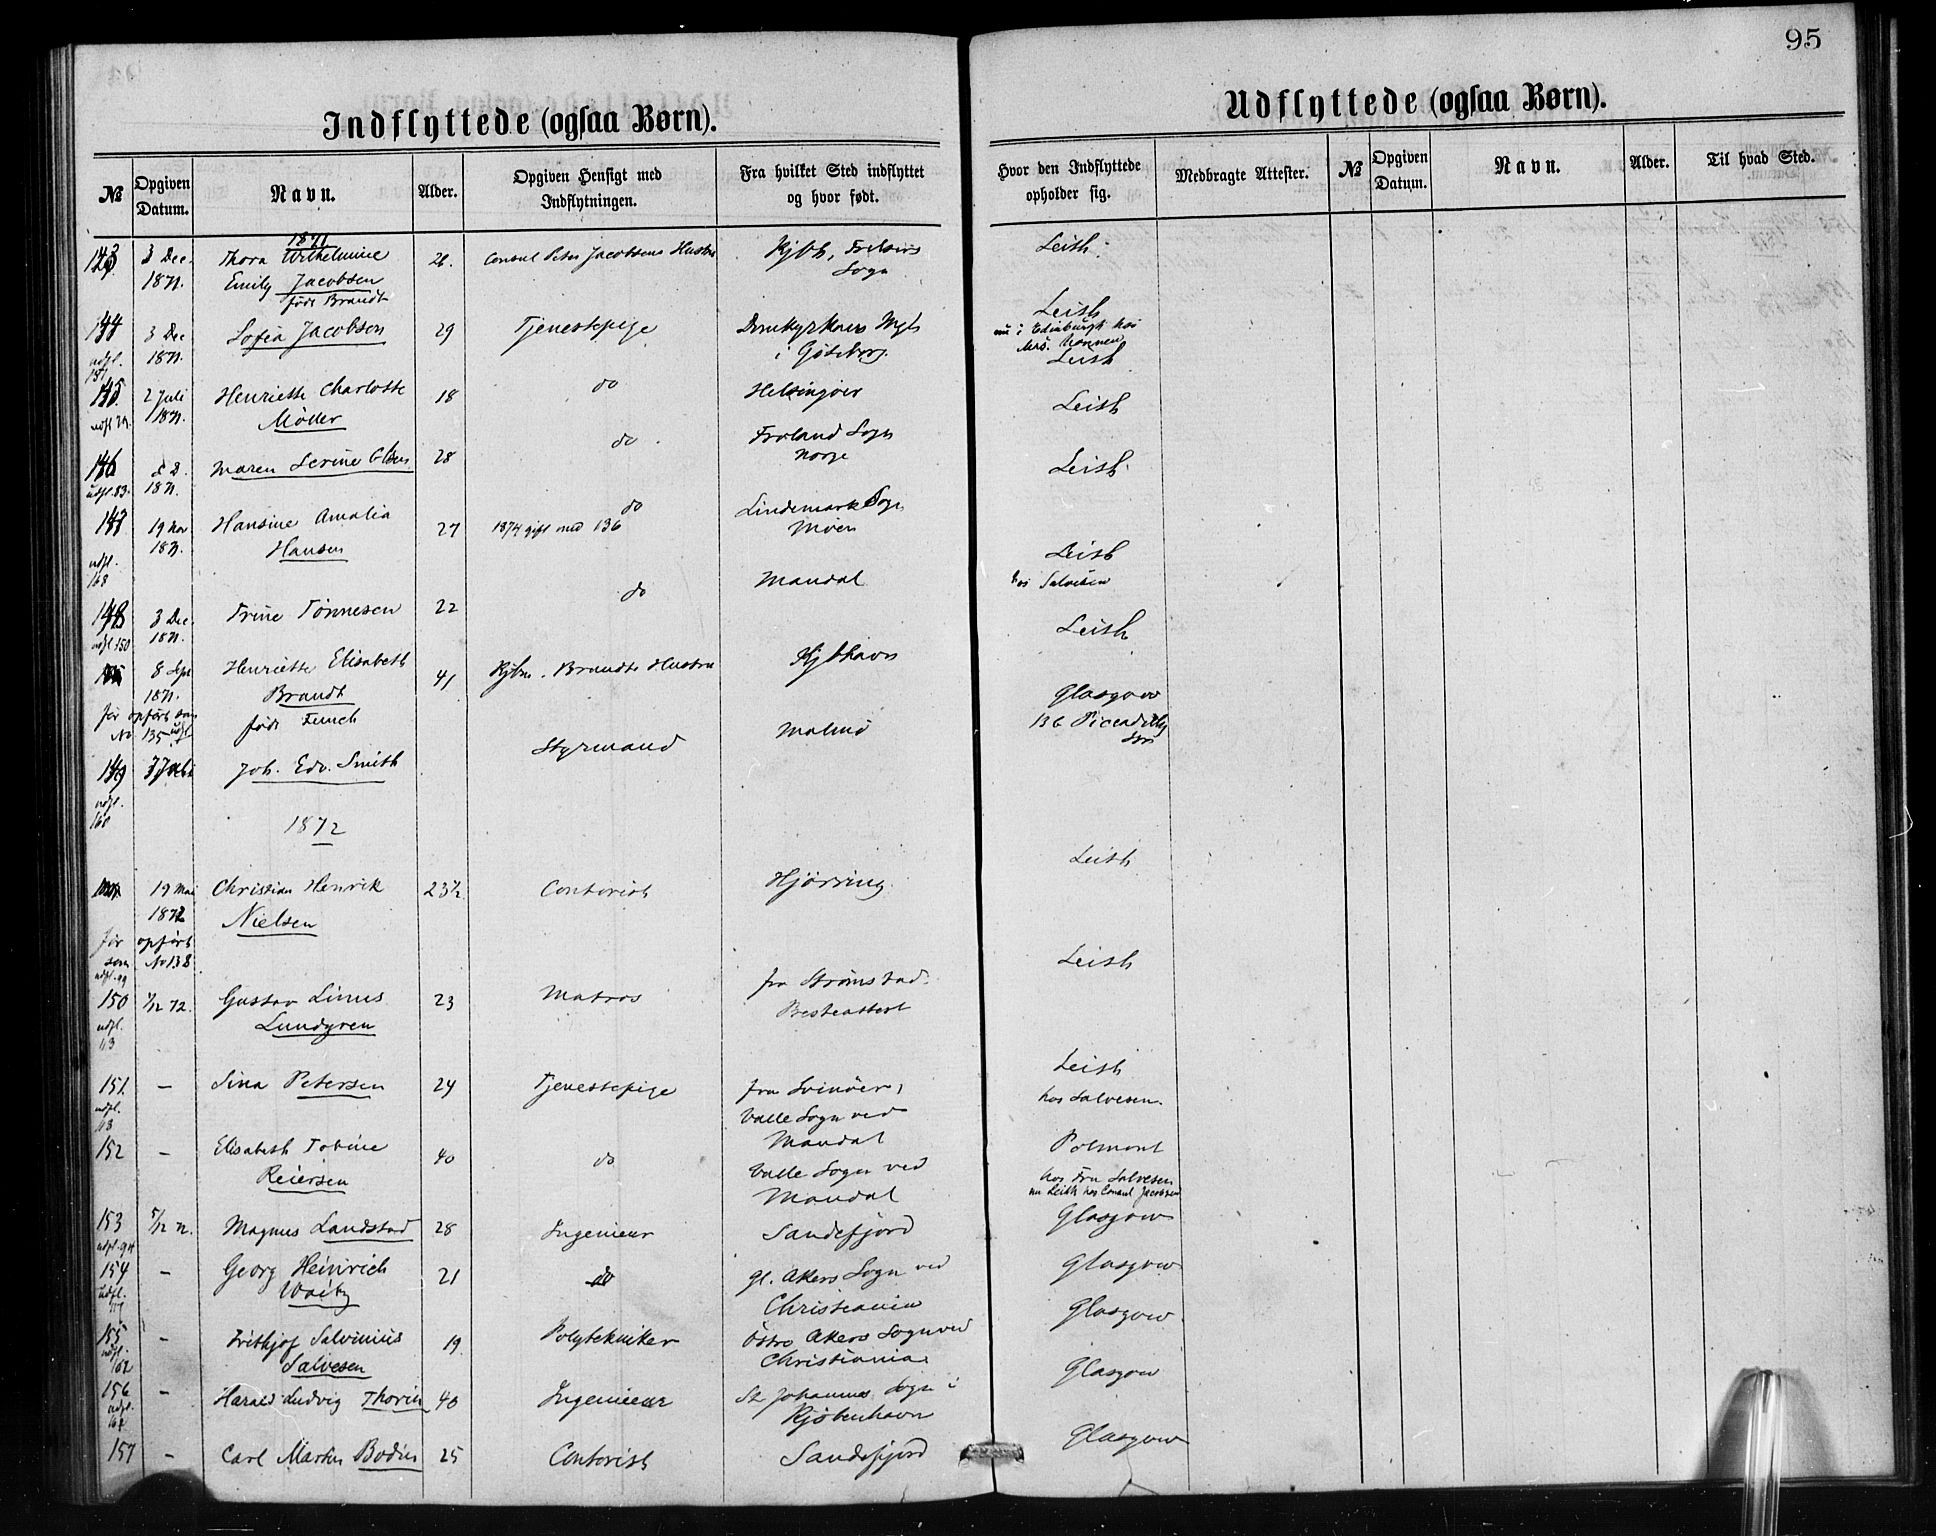 95
Indflyttede (ogsaa Børn).
Udflyttede (ogsaa Børn).
№ Opgiven Datum. Navn. Alder. Opgiven Hensigt med Indflytningen. Fra hvilket Sted indflyttet og hvor født. Hvor den Indflyttede opholder sig. Medbragte Attester. № Opgiven Datum. Navn. Alder. Til hvad Sted.
1871
143 3 Dec. Thora Wilhelmine 26. Consul Peter Jacobsens Hustru Kjbh, Frelsers Leith.
1871. Emily Jacobsen Sogn
født Brandt
144 3 Dec Sofia Jacobson 29 Tjenestepige Domkyrkans Leith
udfl. 1871. i Göteborg. nu i Edinburgh hos
Mrs.
Leith
145. 2 Juli Henriette Charlotte 18 do Helsingøer Leith
1871. Møller
146 1871. Maren Serine Olsen 28 do. Froland Sogn Leith.
udfl. 83. Norge
147 19 Nov Hansine Amalia 27 do Lindemark Sogn Leith
1871. Hansen 1874 gift med 136 Møen
udfl.
168
148 3 Dec. Trine Tönnesen 22 do Mandal hos Salvesen
udfl. 150 1871. Leith
8 Sep Henriette Elisabeth 41 Kjbm. Brandts Hustru Kjbhavn Glasgow
1871. Brandt
før opført som født Funch
No 135 udfl
149 Joh. Edv. Smith Styrmand Malmö 136 Piccadilly
udfl.
160
1872
19 Mai Christian Henrik 23½ Contorist Hjørring Leith
1872 Nielsen
før opført
som No 138
udfl. 99
150 1/12 72. Gustav Linus 23 Matros fra Strömstad. Leith
udfl. Lundgren
113
151. — Sina Petersen 24 Tjenestepige fra Svinöer, Leith
udfl. Valle Sogn ved hos Salvesen.
113 Mandal
152 — Elisabeth Tobine 40 do Valle Sogn ved Polmont
Reiersen Mandal hos Fru Salvesen
nu Leith hos Consul Jacobsen
153 5/12 72. Magnus Landstad 28 Ingenieur Sandefjord Glasgow
udfl. 94
154 — Georg Heinrich 21 do gl. Akers Sogn ved Glasgow
udfl. Christiania
155 — Frithjof Salvinius 19. Polytekniker Östre Akers Sogn ved Glasgow
udfl. Salvesen Christiania.
162
156 — Harald Ludvig Thorin 40 Ingenieur St Johannes Sogn i Glasgow
udfl. Kjöbenhavn
157 — Carl Martin Bodin 25 Contorist Sandefjord Glasgow